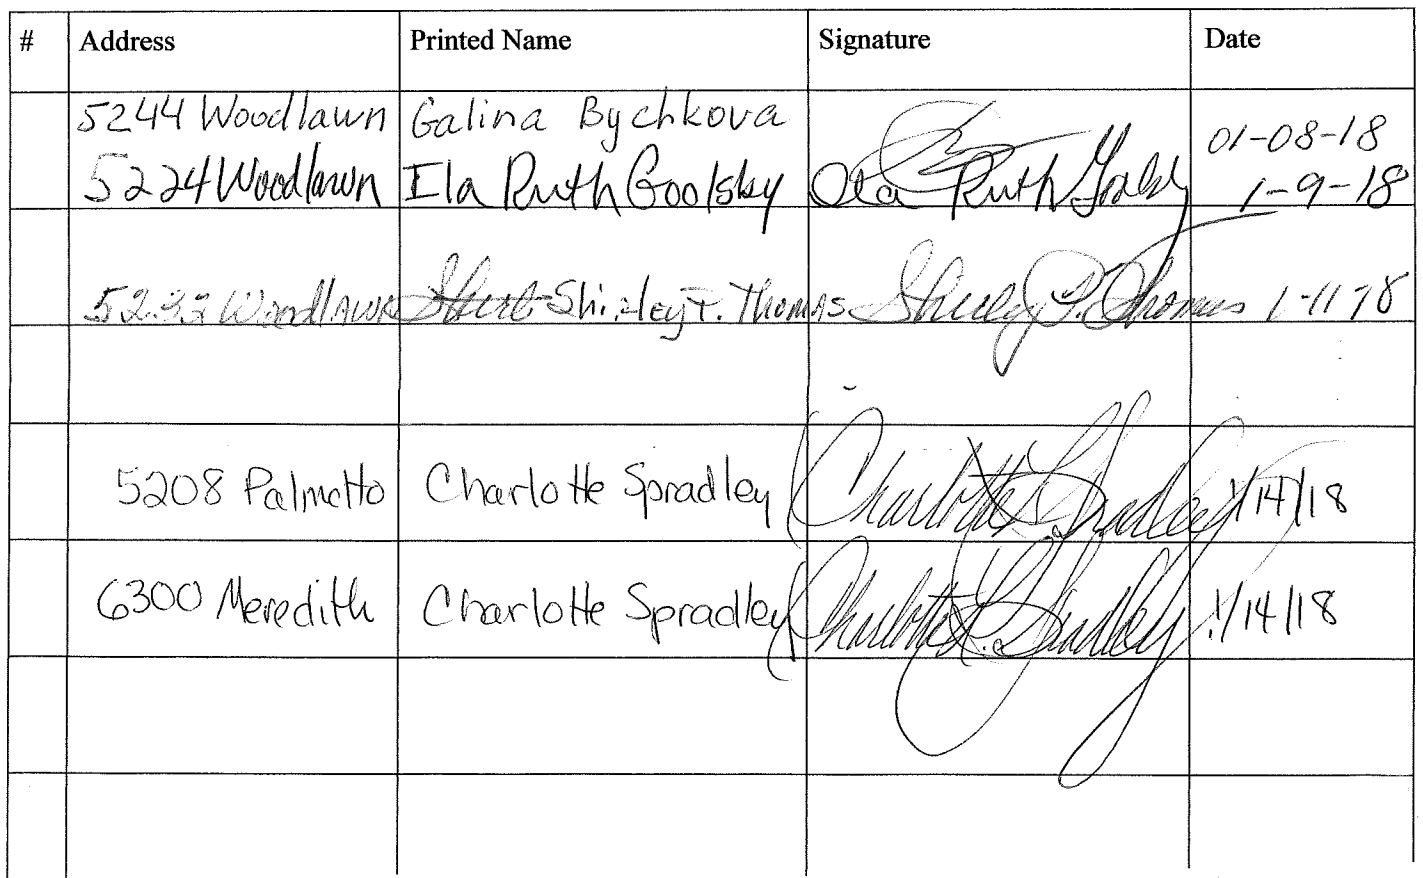 # Address Printed Name Signature Date
5244 Woodlawn Galina Bychkova 01-08-18
5224 Woodlawn Ila Ruth Goolsby Ila Ruth Goolsby 1-9-18
5232 Woodlawn Shirley T. Thomas Shirley T. Thomas 1-11-18
5208 Palmetto Charlotte Spradley Charlotte L. Spradley 1/14/18
6300 Meredith Charlotte Spradley Charlotte L. Spradley 1/14/18